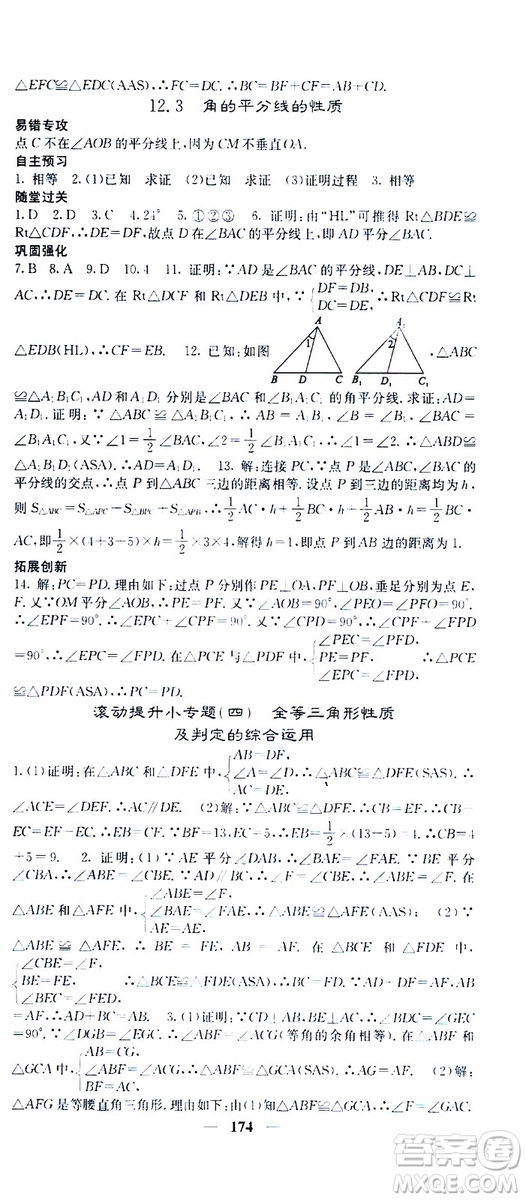 △EFC≌△EDC(AAS),∴FC=DC.∴BC=BF+CF=AB+CD.
12.3 角的平分线的性质
易错专攻
点C不在∠AOB的平分线上,因为CM不垂直OA.
自主预习
1. 相等 2.(1)已知 求证 (2)已知 求证 (3)证明过程 3. 相等
随堂过关
1.D 2.D 3.C 4.24° 5.①②③ 6. 证明:由“HL”可推得Rt△BDE≌
Rt△CDF,∴DE=DF,故点D在∠BAC的平分线上,∴AD平分∠BAC.
巩固强化
7.B 8.A 9.D 10.4 11. 证明:∵AD是∠BAC的平分线,DE⊥AB,DC⊥
AC,∴DE=DC. 在Rt△CDF和Rt△EDB中,∵{DF=DB, DF=DC,∴Rt△CDF≌Rt
△EDB(HL),∴CF=EB. 12. 已知:如图 A 1 B D C A₁ 2 B₁ D₁ C₁ ,△ABC
≌△A₁B₁C₁,AD和A₁D₁分别是∠BAC和∠B₁A₁C₁的角平分线. 求证:AD=
∠BAC,又∵∠1=1/2∠BAC,∠2=1/2∠B₁A₁C₁,∴∠1=∠2,∴△ABD≌
△A₁B₁D₁(ASA).∴AD=A₁D₁. 13. 解:连接PC:∵点P是∠BAC,∠ABC的
平分线的交点,∴点P到△ABC三边的距离相等. 设点P到三边的距离均为h,
则S△ABC=S△APC+S△BPC+S△APB,即1/2AC·h+1/2BC·h+1/2AB·h=1/2AC·BC.即
1/2×(4+3+5)×h=1/2×3×4.解得h=1,∴点P到AB的距离为1.
拓展创新
14. 解:PC=PD. 理由如下:过点P分别作PE⊥OA,PF⊥OB,垂足分别为点E,
F. 又∵OM平分∠AOB,∴PE=PF. 又∵∠AOB=90°,∠PEO=∠PFO=90°,
∴∠EPF=90°,∴∠EPC+∠CPF=90°. 又∵∠CPD=90°,∴∠CPF+∠FPD
=90°,∴∠EPC=∠FPD. 在△PCE与△PDF中,∵{∠PEC=∠PFD, PE=PF, ∠EPC=∠FPD,∴△PCE
≌△PDF(ASA),∴PC=PD.
滚动提升小专题(四) 全等三角形性质
及判定的综合运用
1.(1)证明:在△ABC和△DFE中{AB=DF, ∠A=∠D, AC=DE,∴△ABC≌△DFE(SAS).∴
∠ACE=∠DEF,∴AC∥DE. (2)解:∵△ABC≌△DFE,∴BC=EF,∴CB-
EC=EF-EC,∴EB=CF.∵BF=13,EC=5,∴EB=1/2×(13-5)=4,∴BC=4
+5=9. 2. 证明:(1)∵AE平分∠DAB,∴∠BAE=∠FAE. ∵BE平分
∠CBA,∴∠ABE=∠CBE. ∵∠F=∠CBE,∴∠ABE=∠F. 在
△ABE和△AFE中,{∠ABE=∠F, ∠BAE=∠FAE, AE=AE,∴△ABE≌△AFE(AAS); (2)∵
△ABE≌△AFE,∴BE=FE,AB=AF. 在△BCE和△FDE中,
{∠CBE=∠F, BE=FE, ∴△BCE≌△FDE(ASA),∴BC=DF.∵AD+DF
=AF,∴AD+BC=AB. 3.(1)证明:∵CD⊥AB,BE⊥AC,∴∠BDG=∠GEC
=90°. ∵∠DGB=∠EGC,∴∠ABF=∠ACG(等角的余角相等). 在△ABF和
△GCA中,∵{AB=CG, ∠ABF=∠ACG, BF=AC,∴△ABF≌△GCA(SAS),∴AF=AG. (2)解:
△AFG是等腰直角三角形. 理由如下:∵△ABF≌△GCA,∴∠AFB=∠GAC.
174